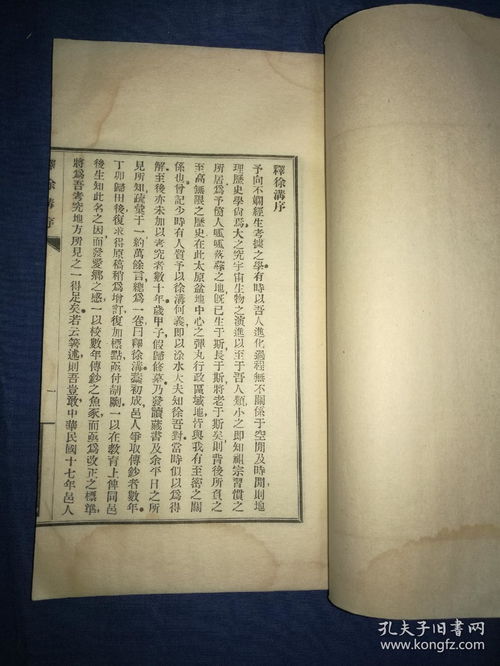 釋徐溝序
予向不嫻經生考據之學有時以吾人進化過程無不關係于空間及時間則地
理歷史學尚焉大之究宇宙生物之演進以至于吾人類小之即知祖宗習慣之
所居焉予簡人呱呱落蓐之地既已生于斯長于斯將老于斯矣則背後所負之
至高無限之歷史在此太原盆地中心之彈丸行政區域地皆與我有至密之關
係也曾記少時有人質予以徐溝何義即以涂水大夫知徐吾對當時似以為得
解至後亦未加以考究者數十年歲甲子假歸修墓乃發讀藏書及余平日之所
見所知疏彙于一約萬餘言總為一卷曰釋徐溝藁初成邑人爭取傳鈔者數年
丁卯歸田後復求得原稿稍為增訂復加標點亟付胡劂一以在教育上俾同邑
後生知此名之因而發愛鄉之感一以校數年傳鈔之魚豕而亟為改正之標準
將為吾考究地方所見之一得足矣若云箸述則吾豈敢中華民國十七年邑人
釋徐溝序
一
孔夫子旧书网
www.kongfz.com